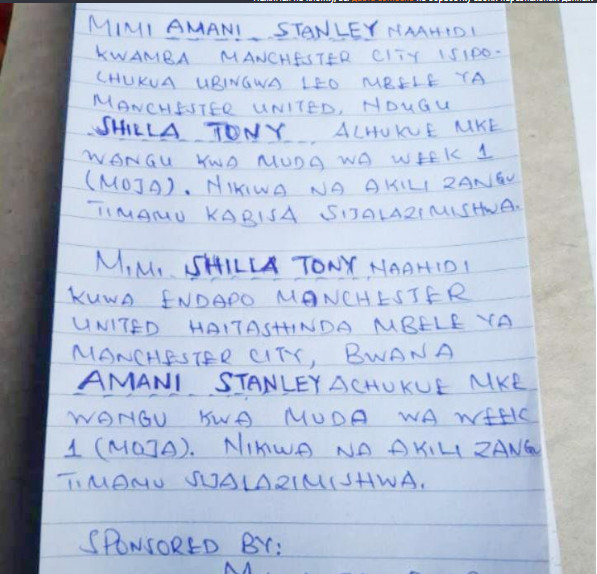 MIMI AMANI STANLEY NAAHIDI
KWAMBA MANCHESTER CITY ISIPO-
CHUKUA UBINGWA LEO MBELE YA
MANCHESTER UNITED, NDUGU
SHILLA TONY ACHUKUE MKE
WANGU KWA MUDA WA WEEK 1
(MOJA). NIKIWA NA AKILI ZANGU
TIMAMU KABISA SIJALAZIMISHWA.
MIMI SHILLA TONY NAAHIDI
KUWA ENDAPO MANCHESTER
UNITED HAITASHINDA MBELE YA
MANCHESTER CITY, BWANA
AMANI STANLEY ACHUKUE MKE
WANGU KWA MUDA WA WEEK
1 (MOJA). NIKIWA NA AKILI ZANGU
TIMAMU SIJALAZIMISHWA.
SPONSORED BY: